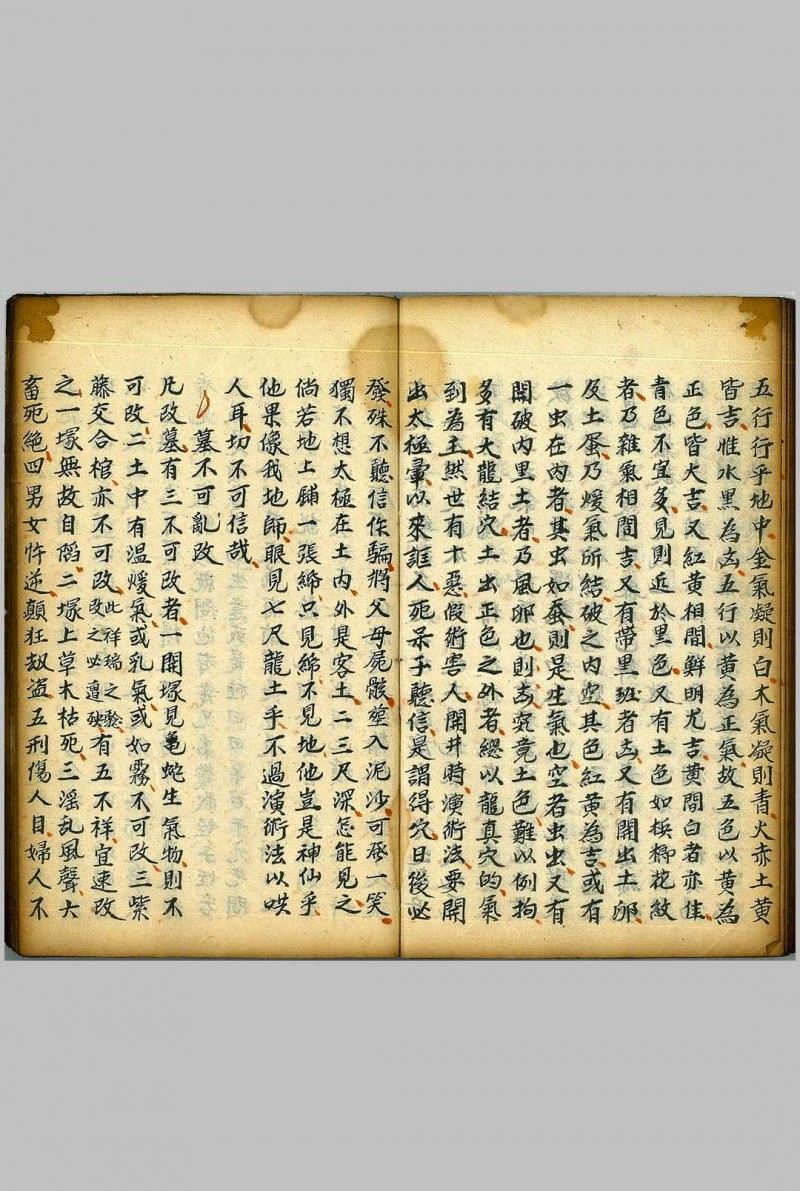 五行行乎地中金氣凝則白木氣凝則青火赤土黄
皆吉惟水黒為凶五行以黄為正氣故五色以黄為
正色皆大吉又紅黄相間鮮明尤吉黄間白者亦佳
青色不宜多見則近於黒色又有土色如檳榔花紋
者乃雜氣相間吉又有帶黒班者凶又有開出土卵
及土蛋乃煖氣所結破之内空其色紅黄為吉或有
一虫在内者其虫如蚕則是生氣也空者虫出又有
開破内里土者乃風卵也則凶究竟土色難以例拘
多有大龍結穴土出正色之外者總以龍真穴的氣
到為主然世有十惡假術害人開井時演術法要開
出太極暈以來誆人死呆子聽信是謂得穴日後必
發殊不聽信你騙將父母屍骸塟入泥沙可發一笑
獨不想太極在土内外是客土二三尺深怎能見之
倘若地上鋪一張締只見締不見地他豈是神仙乎
他果像我地師眼見七尺龍土乎不過演術法以哄
人耳切不可信哉
墓不可亂改
凡改墓有三不可改者一開塚見亀蛇生氣物則不
可改二土中有温煖氣或乳氣或如霧不可改三紫
藤交合棺亦不可改此祥瑞之驗改之必遭殃有五不祥宜速改
之一塚無故自陷二塚上草木枯死三淫乱風聲大
畜死絶四男女忤逆顛狂劫盗五刑傷人目婦人不